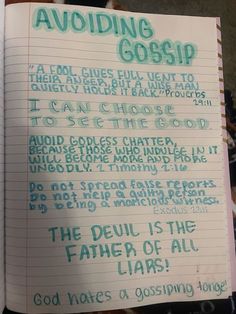 AVOIDING
GOSSIP
"A FOOL GIVES FULL VENT TO
THEIR ANGER, BUT A WISE MAN
QUIETLY HOLDS IT BACK." Proverbs
29:11
I CAN CHOOSE
TO SEE THE GOOD.
AVOID GODLESS CHATTER,
BECAUSE THOSE WHO INDULGE IN IT
WILL BECOME MORE AND MORE
UNGODLY. 2 Timothy 2:16
Do not spread false reports.
Do not help a guilty person
by being a malicious witness.
Exodus 23:1
THE DEVIL IS THE
FATHER OF ALL
LIARS!
God hates a gossiping tongue!